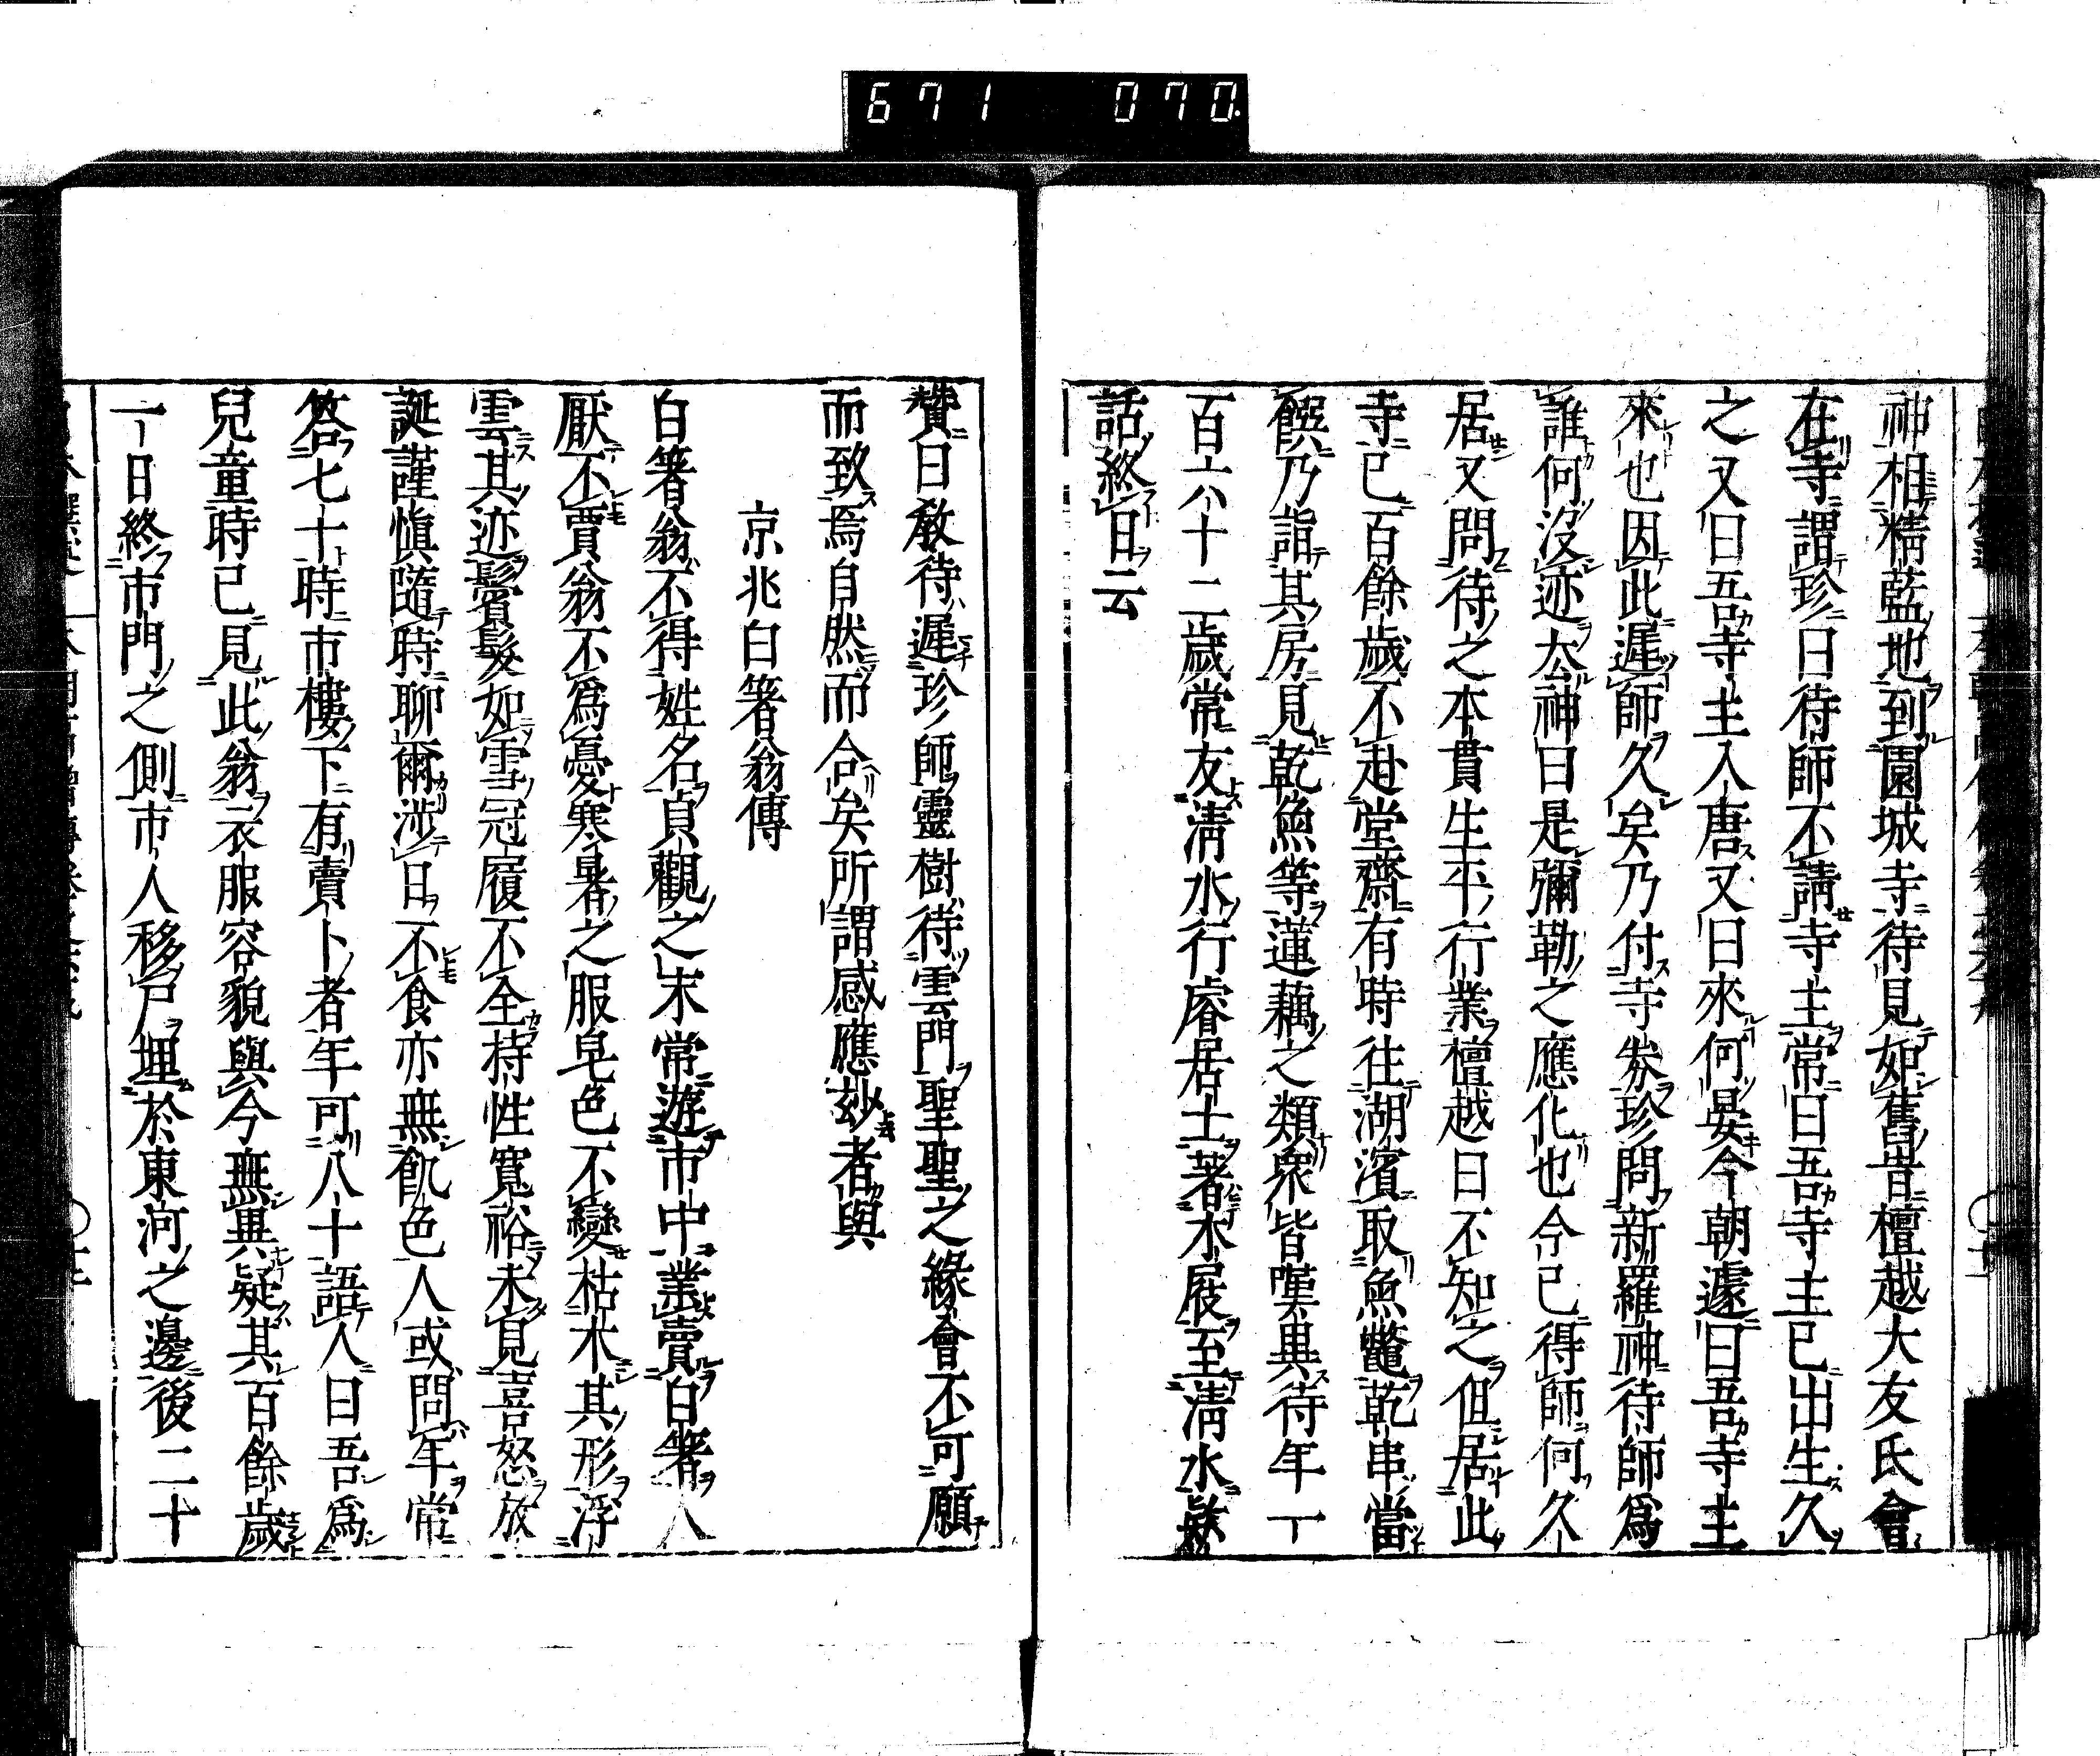 671 070.
神相精藍地到園城寺待見如舊昔檀越大友氏會
在寺謂珍曰待師不請寺主常曰吾寺主已出生久
之又曰吾寺主入唐又曰來何晏今朝遽曰吾寺主
來也因此遲師久矣乃付寺券珍問新羅神待師爲
誰何沒迹厺神曰是彌勒之應化也今已得師何久
居又問待之本貫生平行業檀越曰不知之但居此
寺已百餘歲不赴堂齋有時往湖濱取魚鼈乾串當
饌乃詣其房見乾魚等蓮藕之類衆皆嘆異待年一
百六十二歲常友淸水行睿居士著木屐至淸水欵
話終日云
贊曰敎待遲珍師靈樹待雲門聖聖之緣會不可願
而致焉自然而合矣所謂感應玅者與
京兆白箸翁傳
白箸翁不得姓名貞觀之末常遊市中業賣白箸人
厭不買翁不爲憂寒暑之服皂色不變枯木其形浮
雲其迹鬢髮如雪冠履不全持性寬裕未見喜怒放
誕謹愼隨時聊爾涉日不食亦無飢色人或問年常
答七十時市樓下有賣卜者年可八十語人曰吾爲
兒童時已見此翁衣服容貌與今無異疑其百餘歲
一日終市門之側市人移尸埋於東河之邊後二十